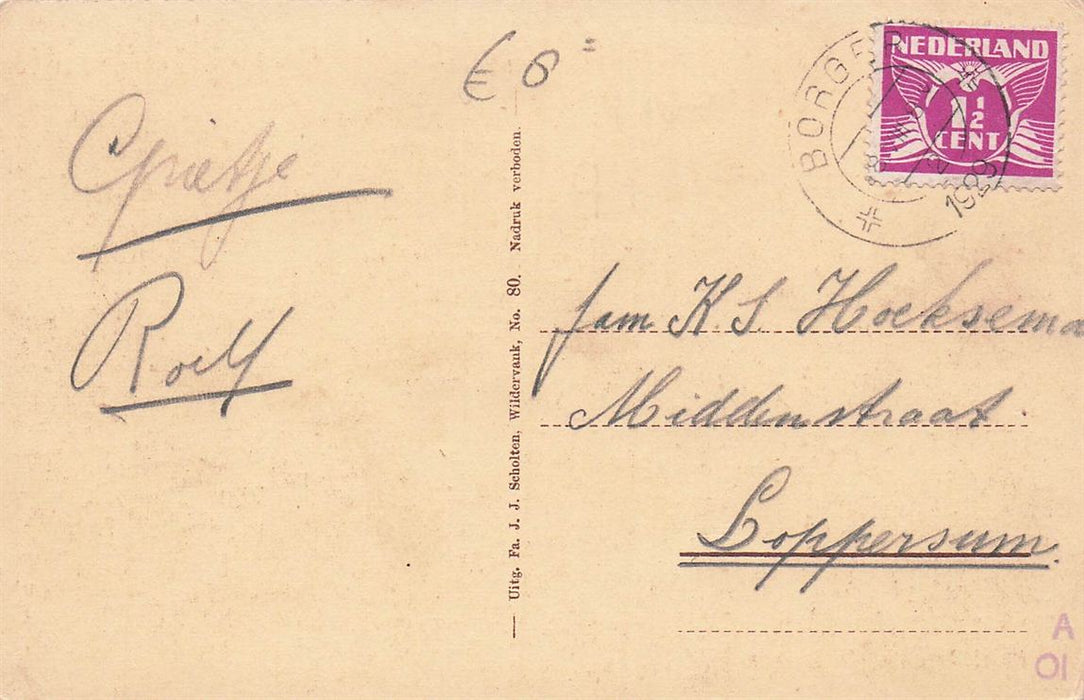 € 6 =
Grietje
Roelf
Uitg. Fa. J. J. Scholten, Wildervank, No. 80. Nadruk verboden.
NEDERLAND
1 1/2
CENT
BORGER
1929
fam K. S. Hoeksema
Middenstraat
Loppersum.
A
OI